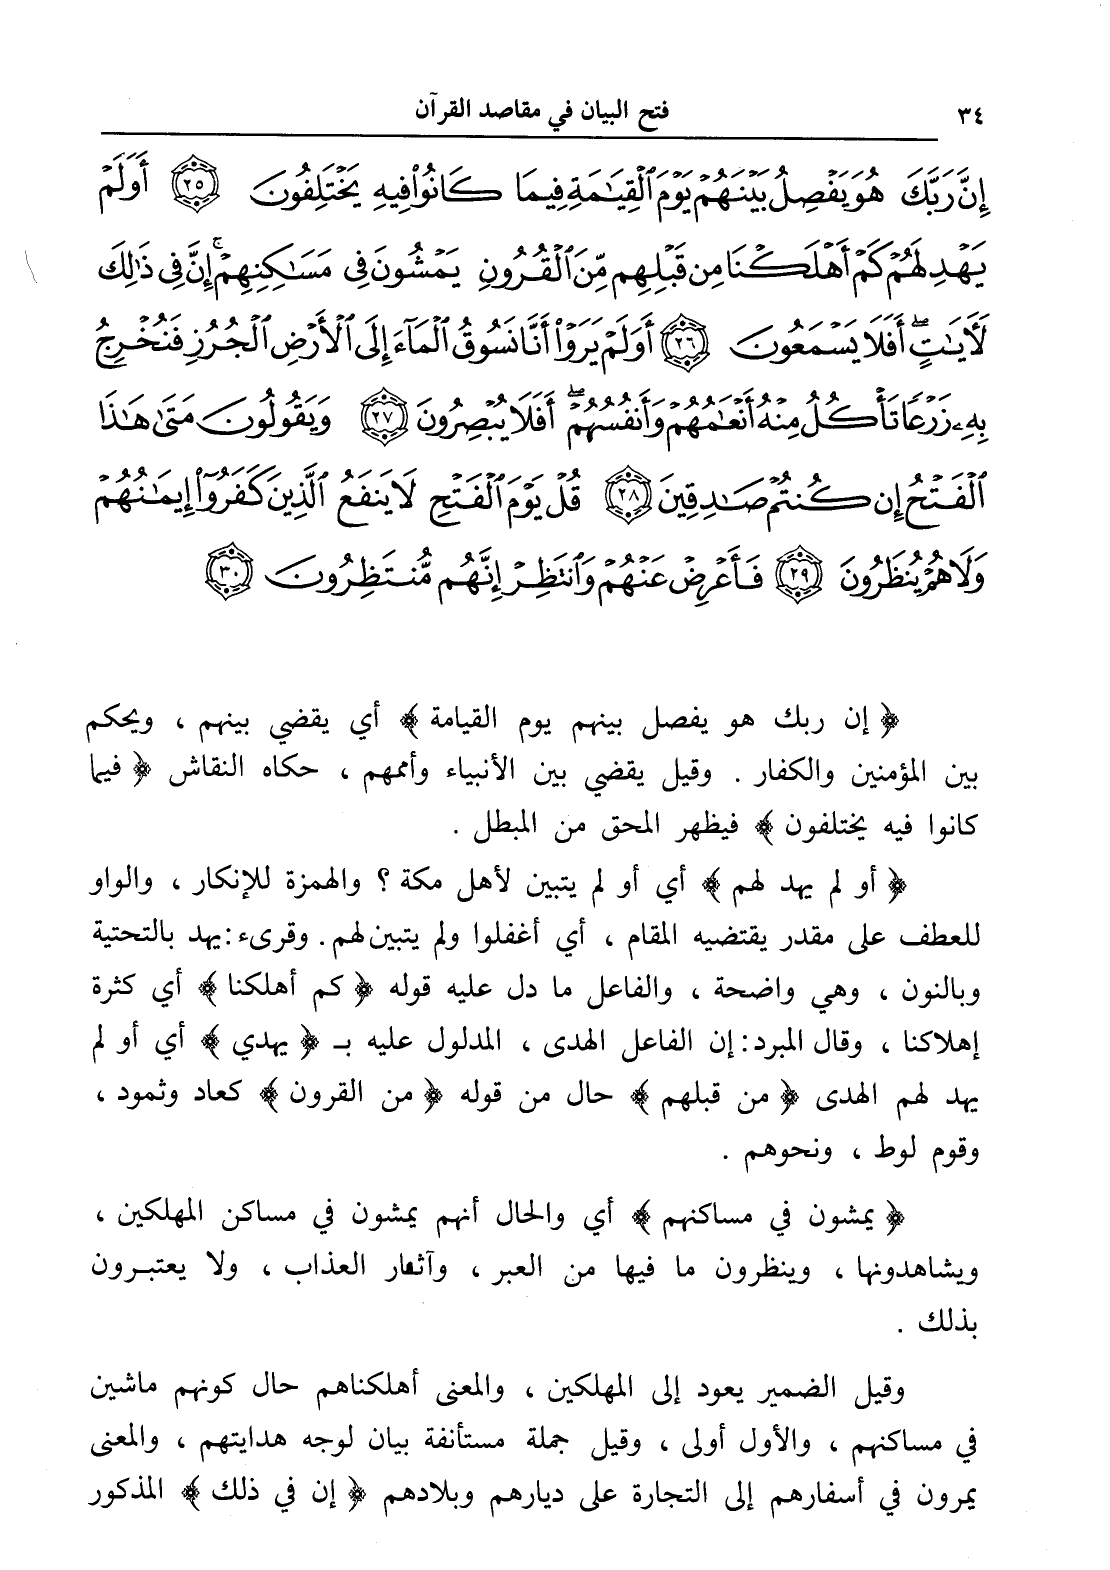 ٣٤ فتح البيان في مقاصد القرآن
إِنَّ رَبَّكَ هُوَ يَفْصِلُ بَيْنَهُمْ يَوْمَ ٱلْقِيَٰمَةِ فِيمَا كَانُوا۟ فِيهِ يَخْتَلِفُونَ ﴿٢٥﴾ أَوَلَمْ
يَهْدِ لَهُمْ كَمْ أَهْلَكْنَا مِن قَبْلِهِم مِّنَ ٱلْقُرُونِ يَمْشُونَ فِى مَسَٰكِنِهِمْ ۚ إِنَّ فِى ذَٰلِكَ
لَءَايَٰتٍ ۖ أَفَلَا يَسْمَعُونَ ﴿٢٦﴾ أَوَلَمْ يَرَوْا۟ أَنَّا نَسُوقُ ٱلْمَآءَ إِلَى ٱلْأَرْضِ ٱلْجُرُزِ فَنُخْرِجُ
بِهِۦ زَرْعًا تَأْكُلُ مِنْهُ أَنْعَٰمُهُمْ وَأَنفُسُهُمْ ۖ أَفَلَا يُبْصِرُونَ ﴿٢٧﴾ وَيَقُولُونَ مَتَىٰ هَٰذَا
ٱلْفَتْحُ إِن كُنتُمْ صَٰدِقِينَ ﴿٢٨﴾ قُلْ يَوْمَ ٱلْفَتْحِ لَا يَنفَعُ ٱلَّذِينَ كَفَرُوٓا۟ إِيمَٰنُهُمْ
وَلَا هُمْ يُنظَرُونَ ﴿٢٩﴾ فَأَعْرِضْ عَنْهُمْ وَٱنتَظِرْ إِنَّهُم مُّنتَظِرُونَ ﴿٣٠﴾
﴿ إن ربك هو يفصل بينهم يوم القيامة ﴾ أي يقضي بينهم ، ويحكم
بين المؤمنين والكفار . وقيل يقضي بين الأنبياء وأممهم ، حكاه النقاش ﴿ فيما
كانوا فيه يختلفون ﴾ فيظهر المحق من المبطل .
﴿ أو لم يهد لهم ﴾ أي أو لم يتبين لأهل مكة ؟ والهمزة للإنكار ، والواو
للعطف على مقدر يقتضيه المقام ، أي أغفلوا ولم يتبين لهم . وقرىء : يهد بالتحتية
وبالنون ، وهي واضحة ، والفاعل ما دل عليه قوله ﴿ كم أهلكنا ﴾ أي كثرة
إهلاكنا ، وقال المبرد : إن الفاعل الهدى ، المدلول عليه بـ ﴿ يهدي ﴾ أي أو لم
يهد لهم الهدى ﴿ من قبلهم ﴾ حال من قوله ﴿ من القرون ﴾ كعاد وثمود ،
وقوم لوط ، ونحوهم .
﴿ يمشون في مساكنهم ﴾ أي والحال أنهم يمشون في مساكن المهلكين ،
ويشاهدونها ، وينظرون ما فيها من العبر ، وآثار العذاب ، ولا يعتبرون
بذلك .
وقيل الضمير يعود إلى المهلكين ، والمعنى أهلكناهم حال كونهم ماشين
في مساكنهم ، والأول أولى ، وقيل جملة مستأنفة بيان لوجه هدايتهم ، والمعنى
يمرون في أسفارهم إلى التجارة على ديارهم وبلادهم ﴿ إن في ذلك ﴾ المذكور